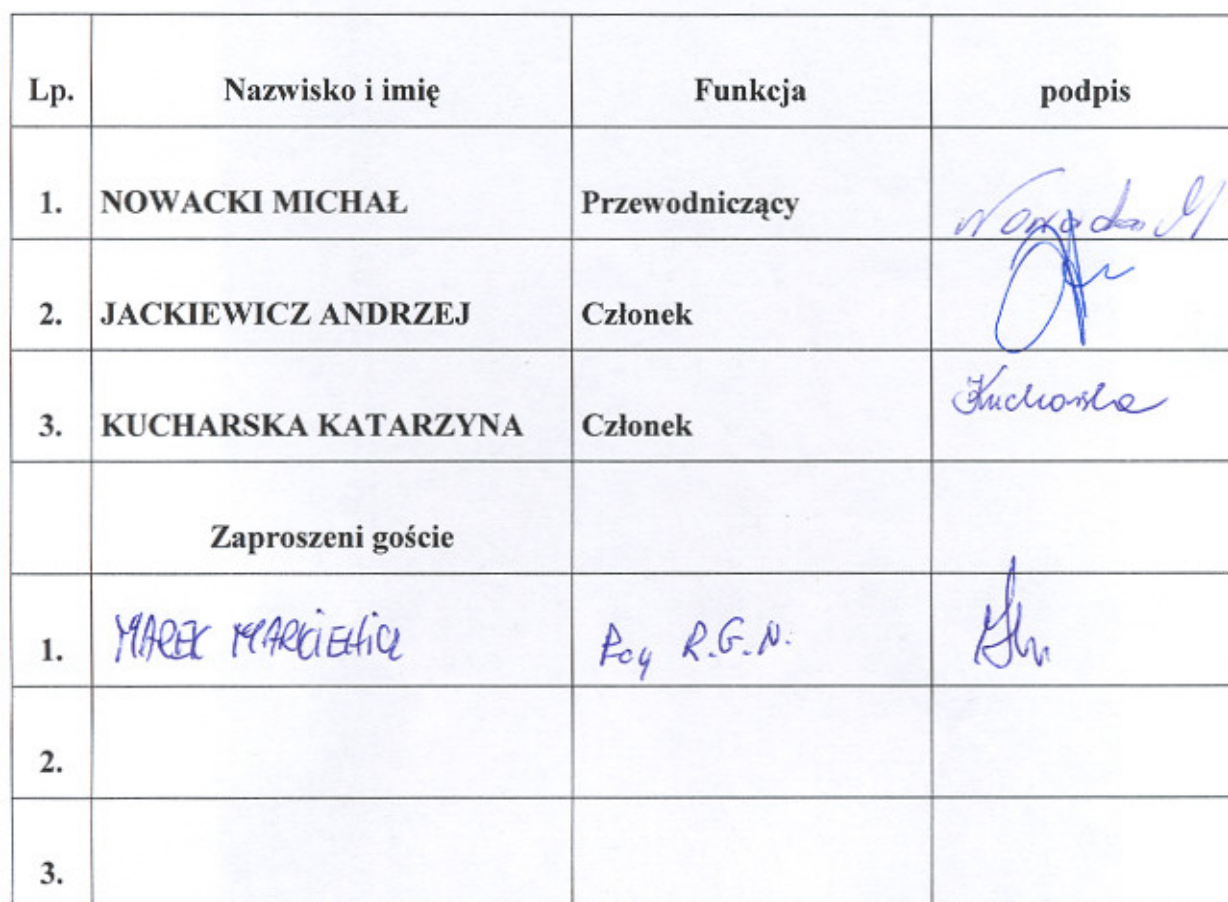 Lp. Nazwisko i imię Funkcja podpis
1. NOWACKI MICHAŁ Przewodniczący
2. JACKIEWICZ ANDRZEJ Członek
3. KUCHARSKA KATARZYNA Członek Kucharska
Zaproszeni goście
1. MAREK MARKIEWICZ R.G.N.
2.
3.